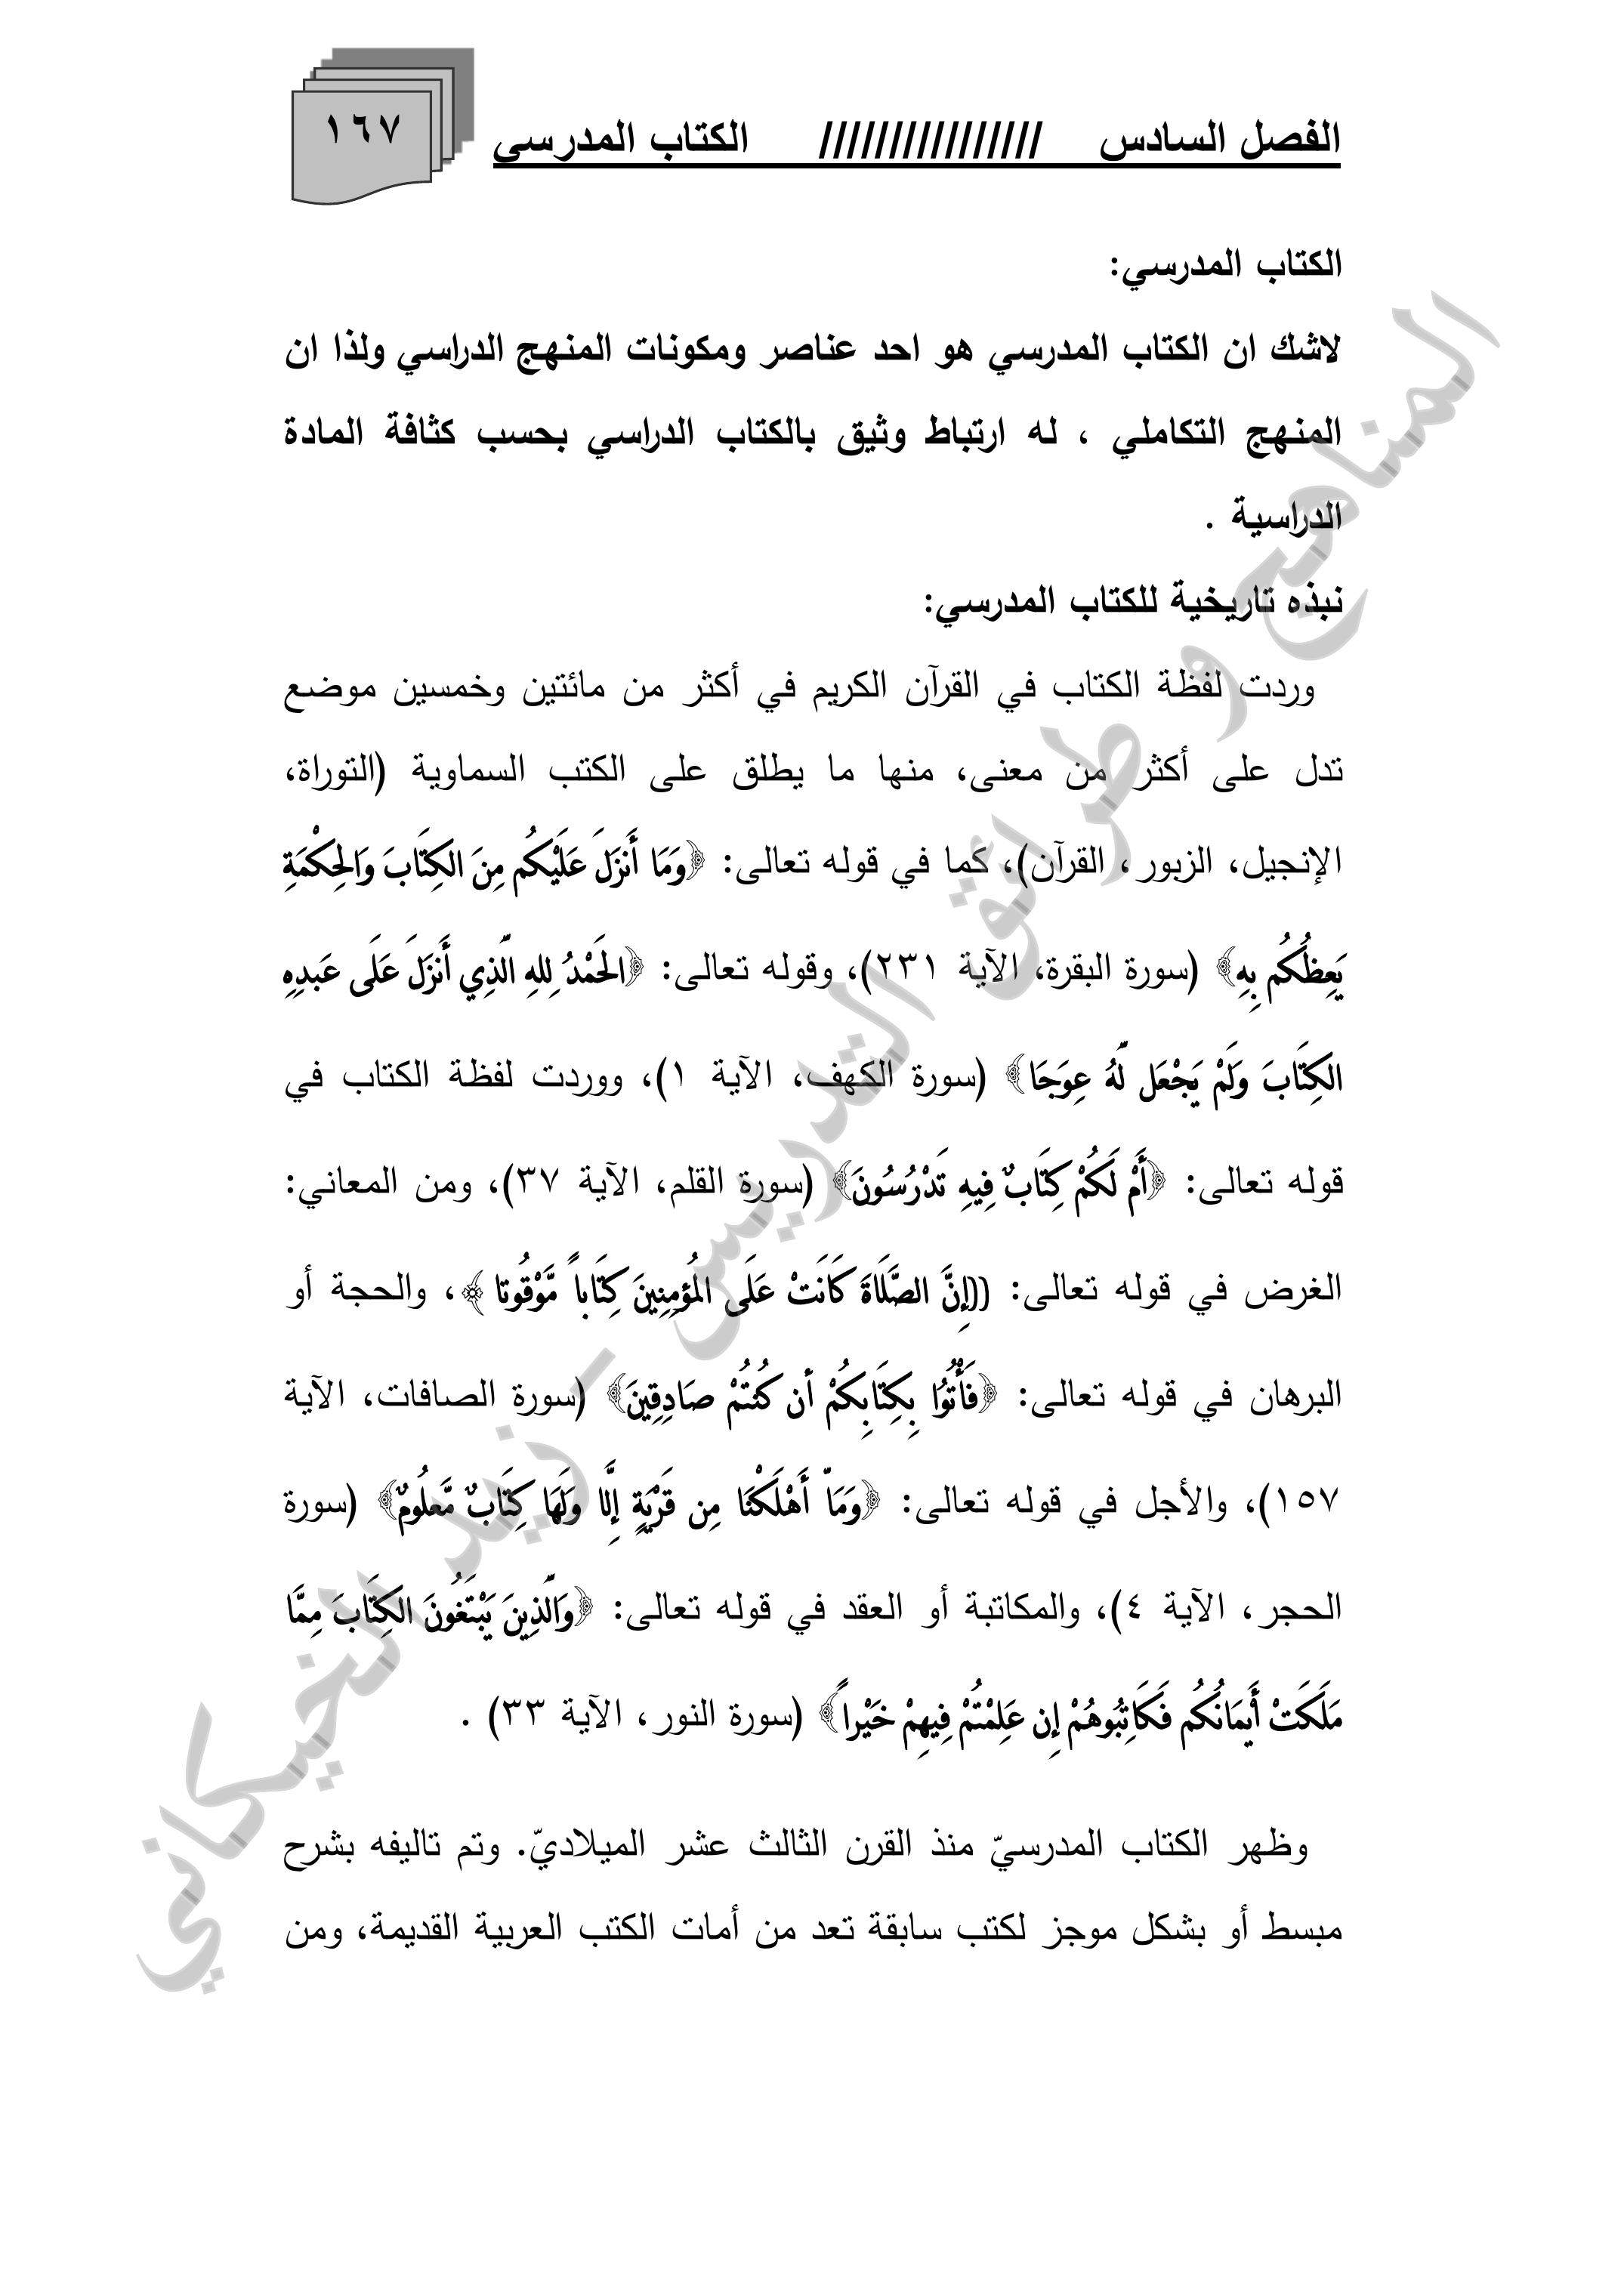 الفصل السادس //////////////// الكتاب المدرسي
١٦٧
الكتاب المدرسي:
لاشك ان الكتاب المدرسي هو احد عناصر ومكونات المنهج الدراسي ولذا ان
المنهج التكاملي ، له ارتباط وثيق بالكتاب الدراسي بحسب كثافة المادة
الدراسية .
نبذه تاريخية للكتاب المدرسي:
وردت لفظة الكتاب في القرآن الكريم في أكثر من مائتين وخمسين موضع
تدل على أكثر من معنى، منها ما يطلق على الكتب السماوية (التوراة،
الإنجيل، الزبور، القرآن)، كما في قوله تعالى: ﴿وَمَا أَنزَلَ عَلَيْكُم مِنَ الكِتَابَ وَالحِكْمَةِ
يَعِظُكُم بِهِ﴾ (سورة البقرة، الآية ٢٣١)، وقوله تعالى: ﴿الحَمْدُ لِلهِ الَّذِي أَنزَلَ عَلَى عَبدِهِ
الكِتَابَ وَلَمْ يَجْعَل لَّهُ عِوَجَا﴾ (سورة الكهف، الآية ١)، ووردت لفظة الكتاب في
قوله تعالى: ﴿أَمْ لَكُمْ كِتَابٌ فِيهِ تَدْرُسُونَ﴾ (سورة القلم، الآية ٣٧)، ومن المعاني:
الغرض في قوله تعالى: ((إِنَّ الصَّلَاةَ كَانَتْ عَلَى المُؤمِنِينَ كِتَاباً مَّوْقُوتا ﴾، والحجة أو
البرهان في قوله تعالى: ﴿فَأْتُوُا بِكِتَابِكُمْ أن كُنتُمْ صَادِقِينَ﴾ (سورة الصافات، الآية
١٥٧)، والأجل في قوله تعالى: ﴿وَمَاّ أَهْلَكْنَا مِن قَرْيَةٍ إِلَّا وَلَهَا كِتَابٌ مَّعلُومٌ﴾ (سورة
الحجر، الآية ٤)، والمكاتبة أو العقد في قوله تعالى: ﴿وَالَّذِينَ يَبْتَغُونَ الكِتَابَ مِمَّا
مَلَكَتْ أَيمَانُكُم فَكَاتِبُوهُمْ إِن عَلِمْتُمْ فِيهِمْ خَيْراً﴾ (سورة النور، الآية ٣٣) .
وظهر الكتاب المدرسيّ منذ القرن الثالث عشر الميلاديّ. وتم تاليفه بشرح
مبسط أو بشكل موجز لكتب سابقة تعد من أمات الكتب العربية القديمة، ومن
المناهج و طرائق التدريس – زيد الخيكاني